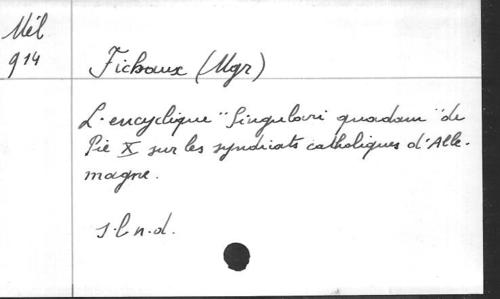 Mél
914
Fichaux (Mgr)
L'encyclique "Singulari quadam" de
Pie X sur les syndicats catholiques d'Alle-
magne.
s.l n.d.